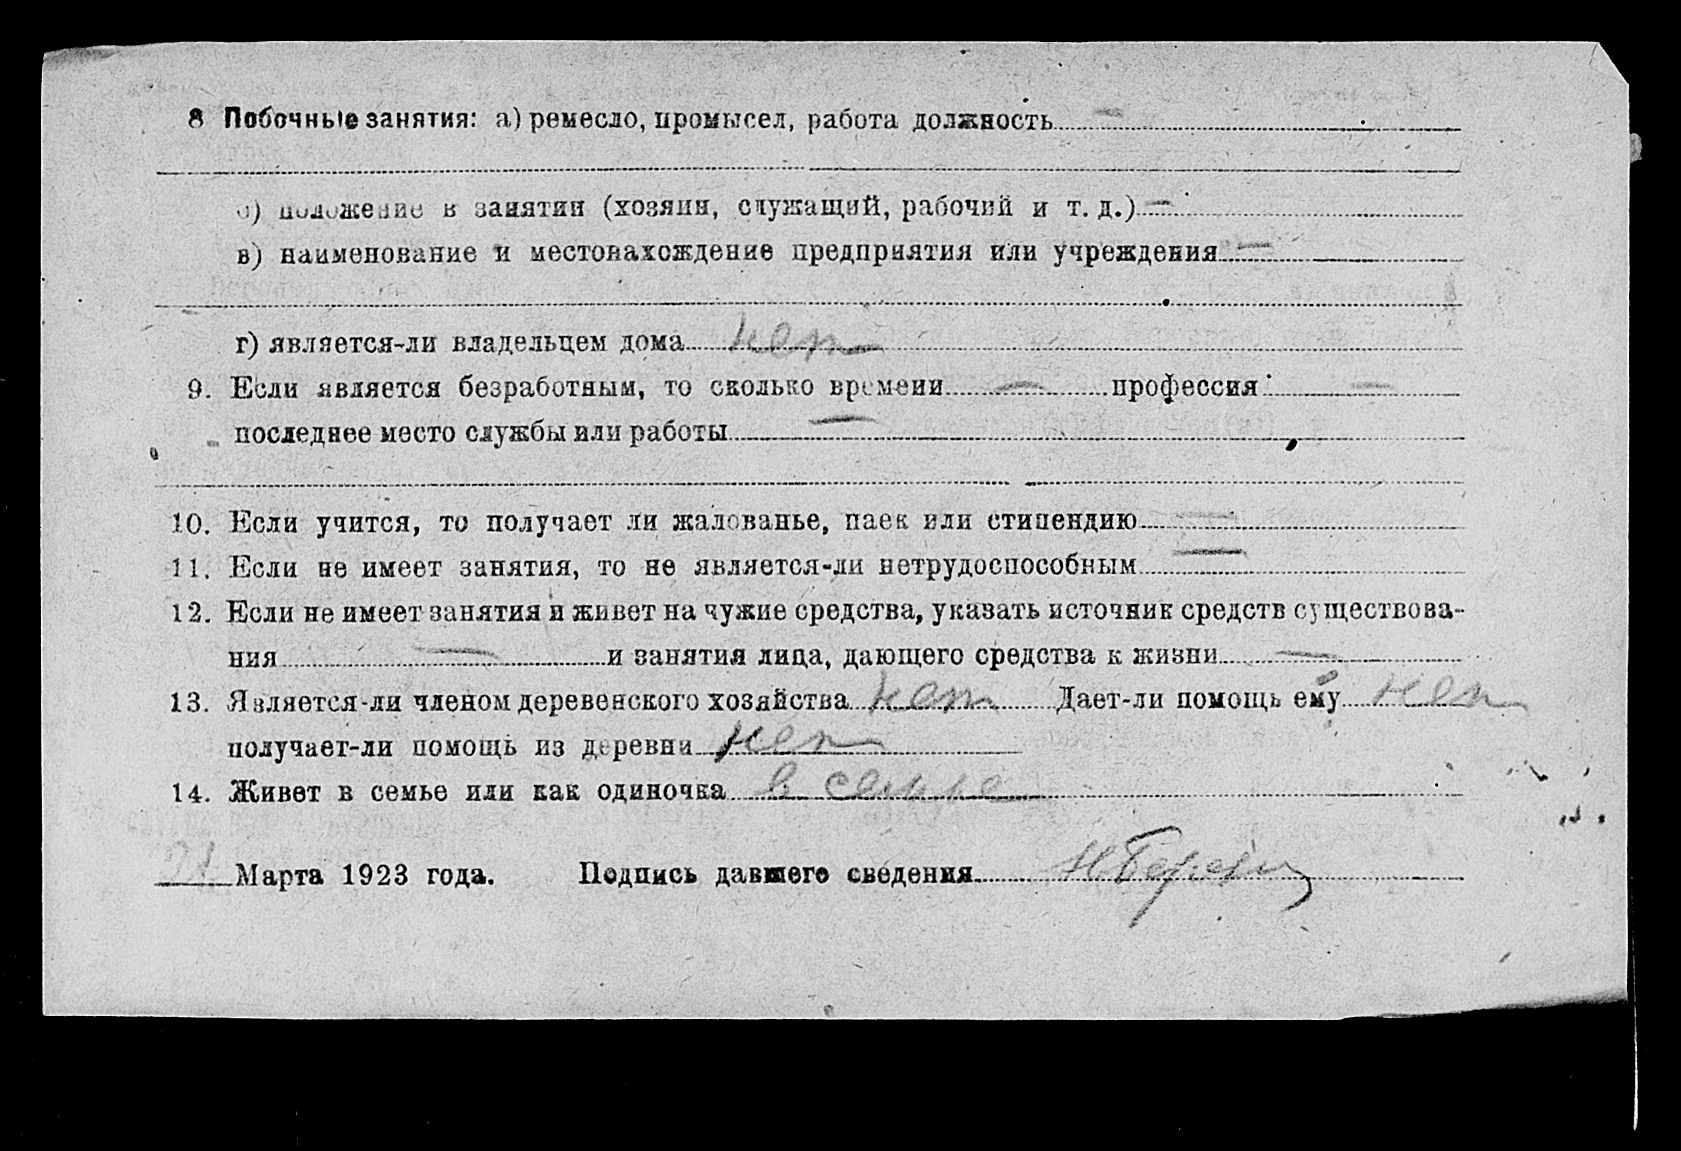 8 Побочные занятия: а) ремесло, промысел, работа должность —
б) положение в занятии (хозяин, служащий, рабочий и т. д.) —
в) наименование и местонахождение предприятия или учреждения —
г) является-ли владельцем дома нет
9. Если является безработным, то сколько времени — профессия —
последнее место службы или работы —
10. Если учится, то получает ли жалованье, паек или стипендию —
11. Если не имеет занятия, то не является-ли нетрудоспособным —
12. Если не имеет занятия и живет на чужие средства, указать источник средств существова-
ния — и занятия лица, дающего средства к жизни —
13. Является-ли членом деревенского хозяйства нет Дает-ли помощь ему нет
получает-ли помощь из деревни нет
14. Живет в семье или как одиночка в семье
Марта 1923 года. Подпись давшего сведения